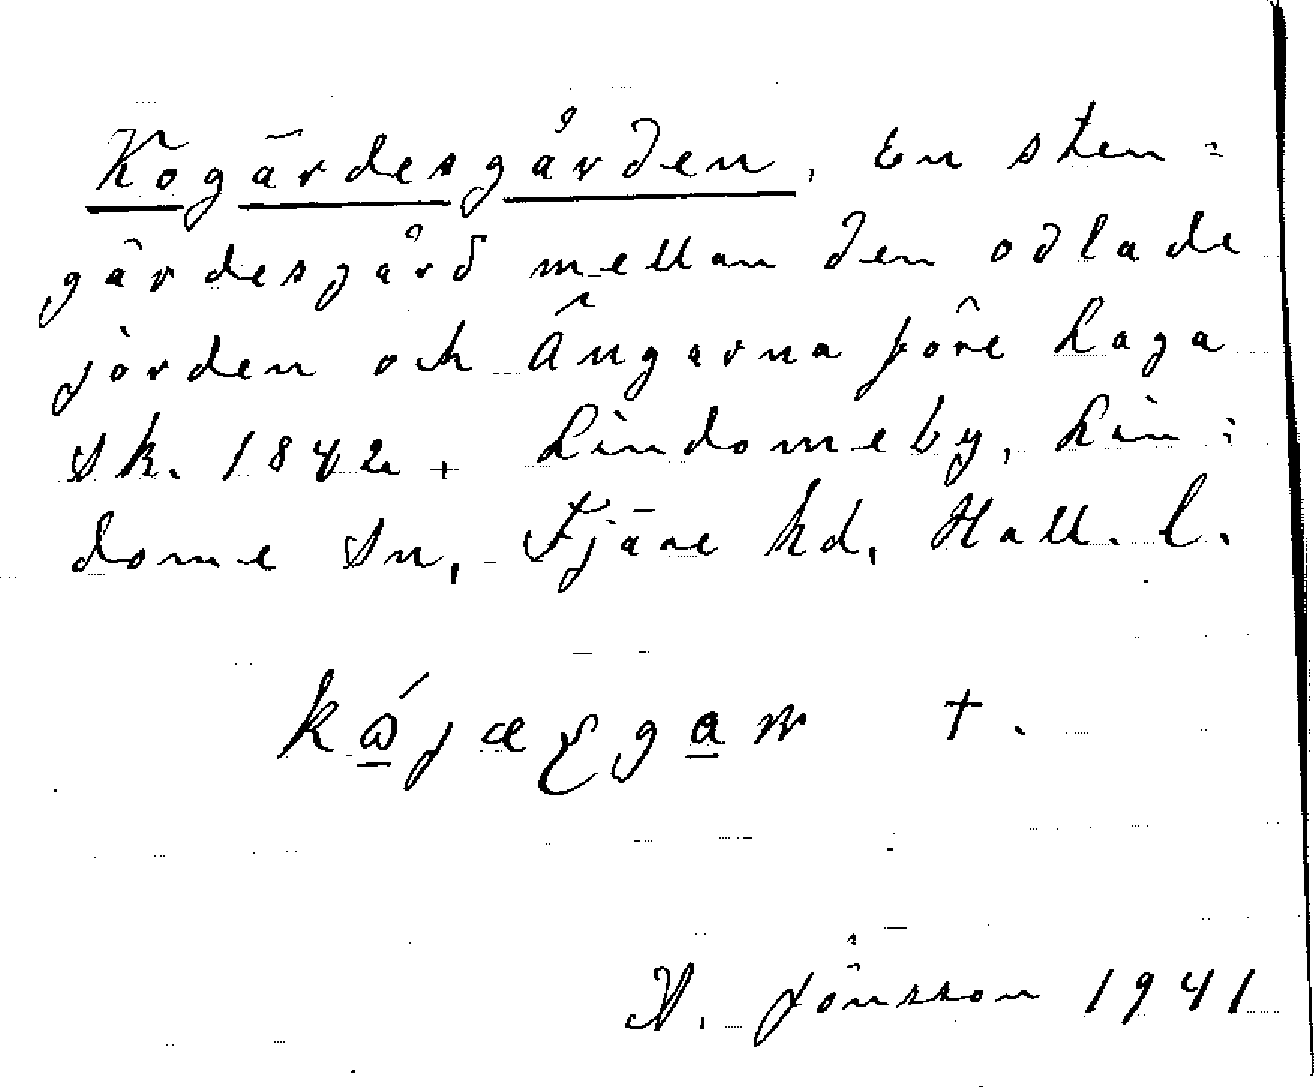 Kogärdesgården, En sten=
gärdesgård mellan den odlade
jorden och Ängarna före Laga
Sk. 1842. Lindomeby, Lin=
dome Sn, Fjäre hd, Hall. l.
†.
N. Jönsson 1941